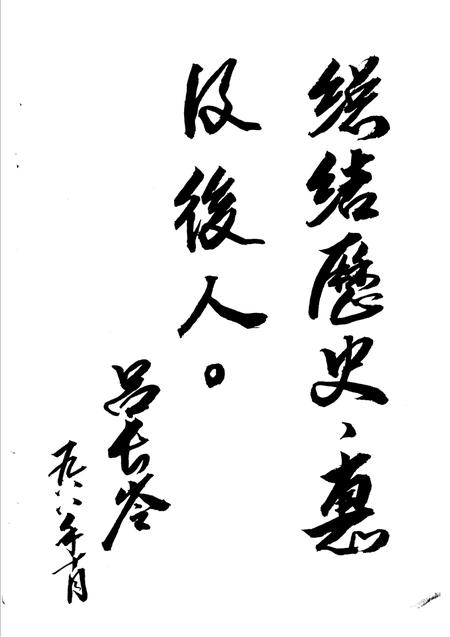 總結歷史、惠
及後人。
呂长岺
一九八八年十月